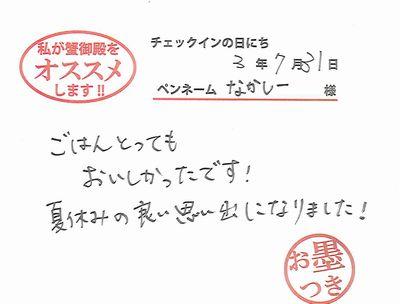 私が蟹御殿を
オススメ
します!!
チェックインの日にち
3年7月31日
ペンネーム なかしー 様
ごはんとっても
おいしかったです!
夏休みの良い思い出になりました!
お墨
つき